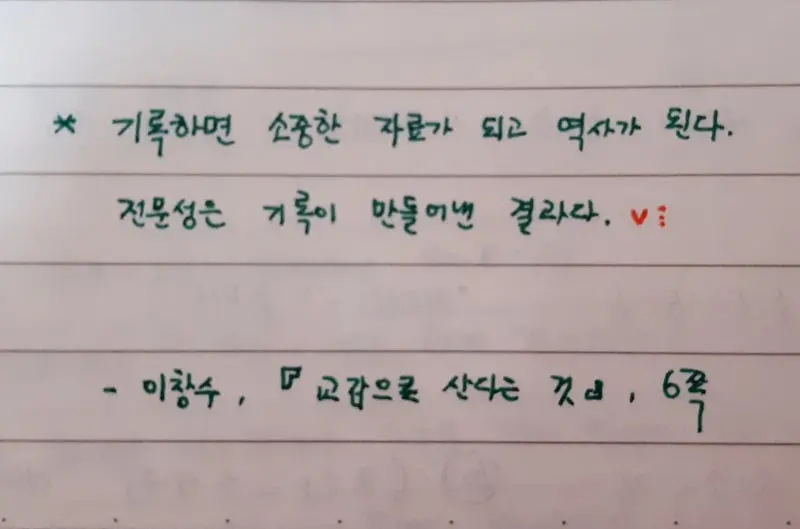 * 기록하면 소중한 자료가 되고 역사가 된다.
전문성은 기록이 만들어낸 결과다. v⋮
- 이창수, 『교감으로 산다는 것』, 6쪽